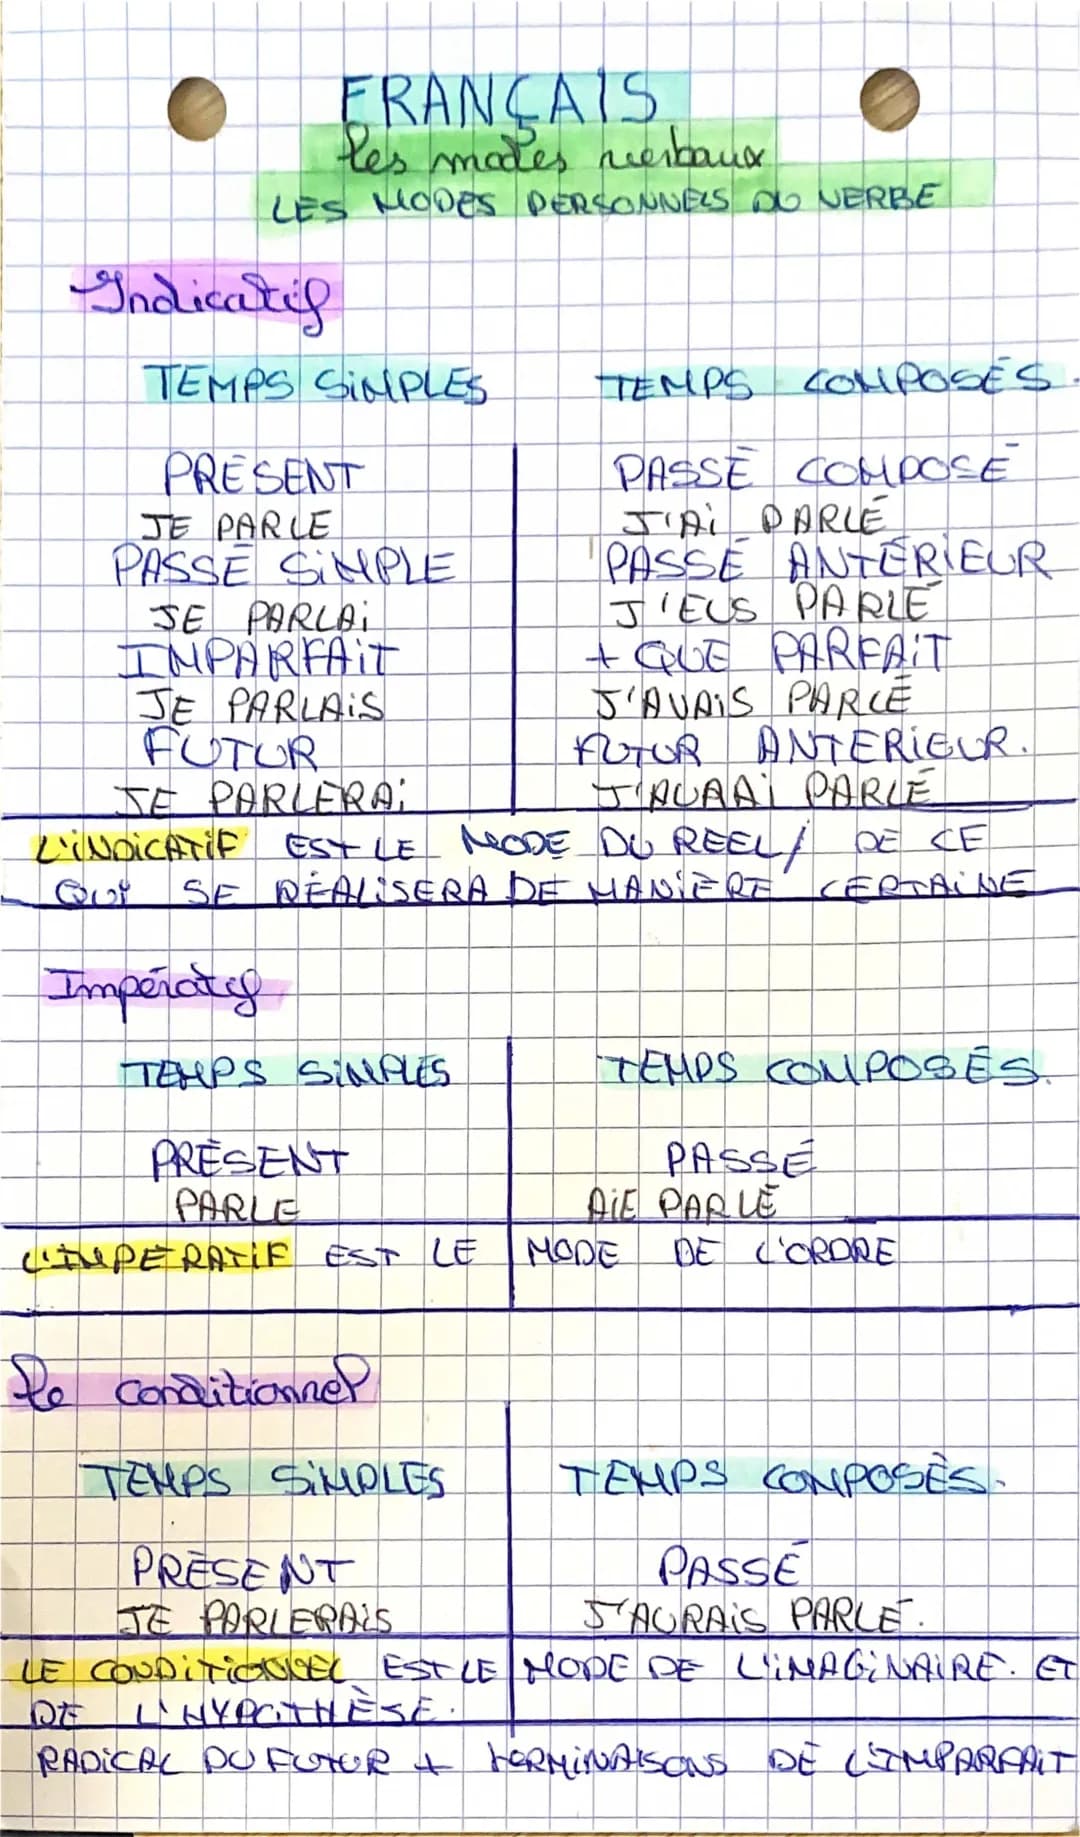 FRANÇAIS
les modes verbaux
LES MODES PERSONNELS DU VERBE
Indicatif
TEMPS SIMPLES
TEMPS COMPOSÉS.
PRÉSENT
PASSÉ COMPOSÉ
JE PARLE
J'AI PARLÉ
PASSÉ SIMPLE
PASSÉ ANTÉRIEUR
JE PARLAI
J'EUS PARLÉ
IMPARFAIT
+ QUE PARFAIT
JE PARLAIS
J'AVAIS PARLÉ
FUTUR
FUTUR ANTERIEUR.
JE PARLERAI
J'AURAI PARLÉ
L'INDICATIF EST LE MODE DU REEL/ DE CE
QUI SE RÉALISERA DE MANIÈRE CERTAINE
Impératif
TEMPS SIMPLES
TEMPS COMPOSÉS.
PRÉSENT
PASSÉ
PARLE
AIE PARLÉ
L'IMPERATIF EST LE MODE DE L'ORDRE
Le conditionnel
TEMPS SIMPLES
TEMPS COMPOSÉS.
PRÉSENT
PASSÉ
JE PARLERAIS
J'AURAIS PARLÉ.
LE CONDITIONNEL EST LE MODE DE L'IMAGINAIRE. ET
DE L'HYPOTHÈSE.
RADICAL DU FUTUR + TERMINAISONS DE L'IMPARFAIT